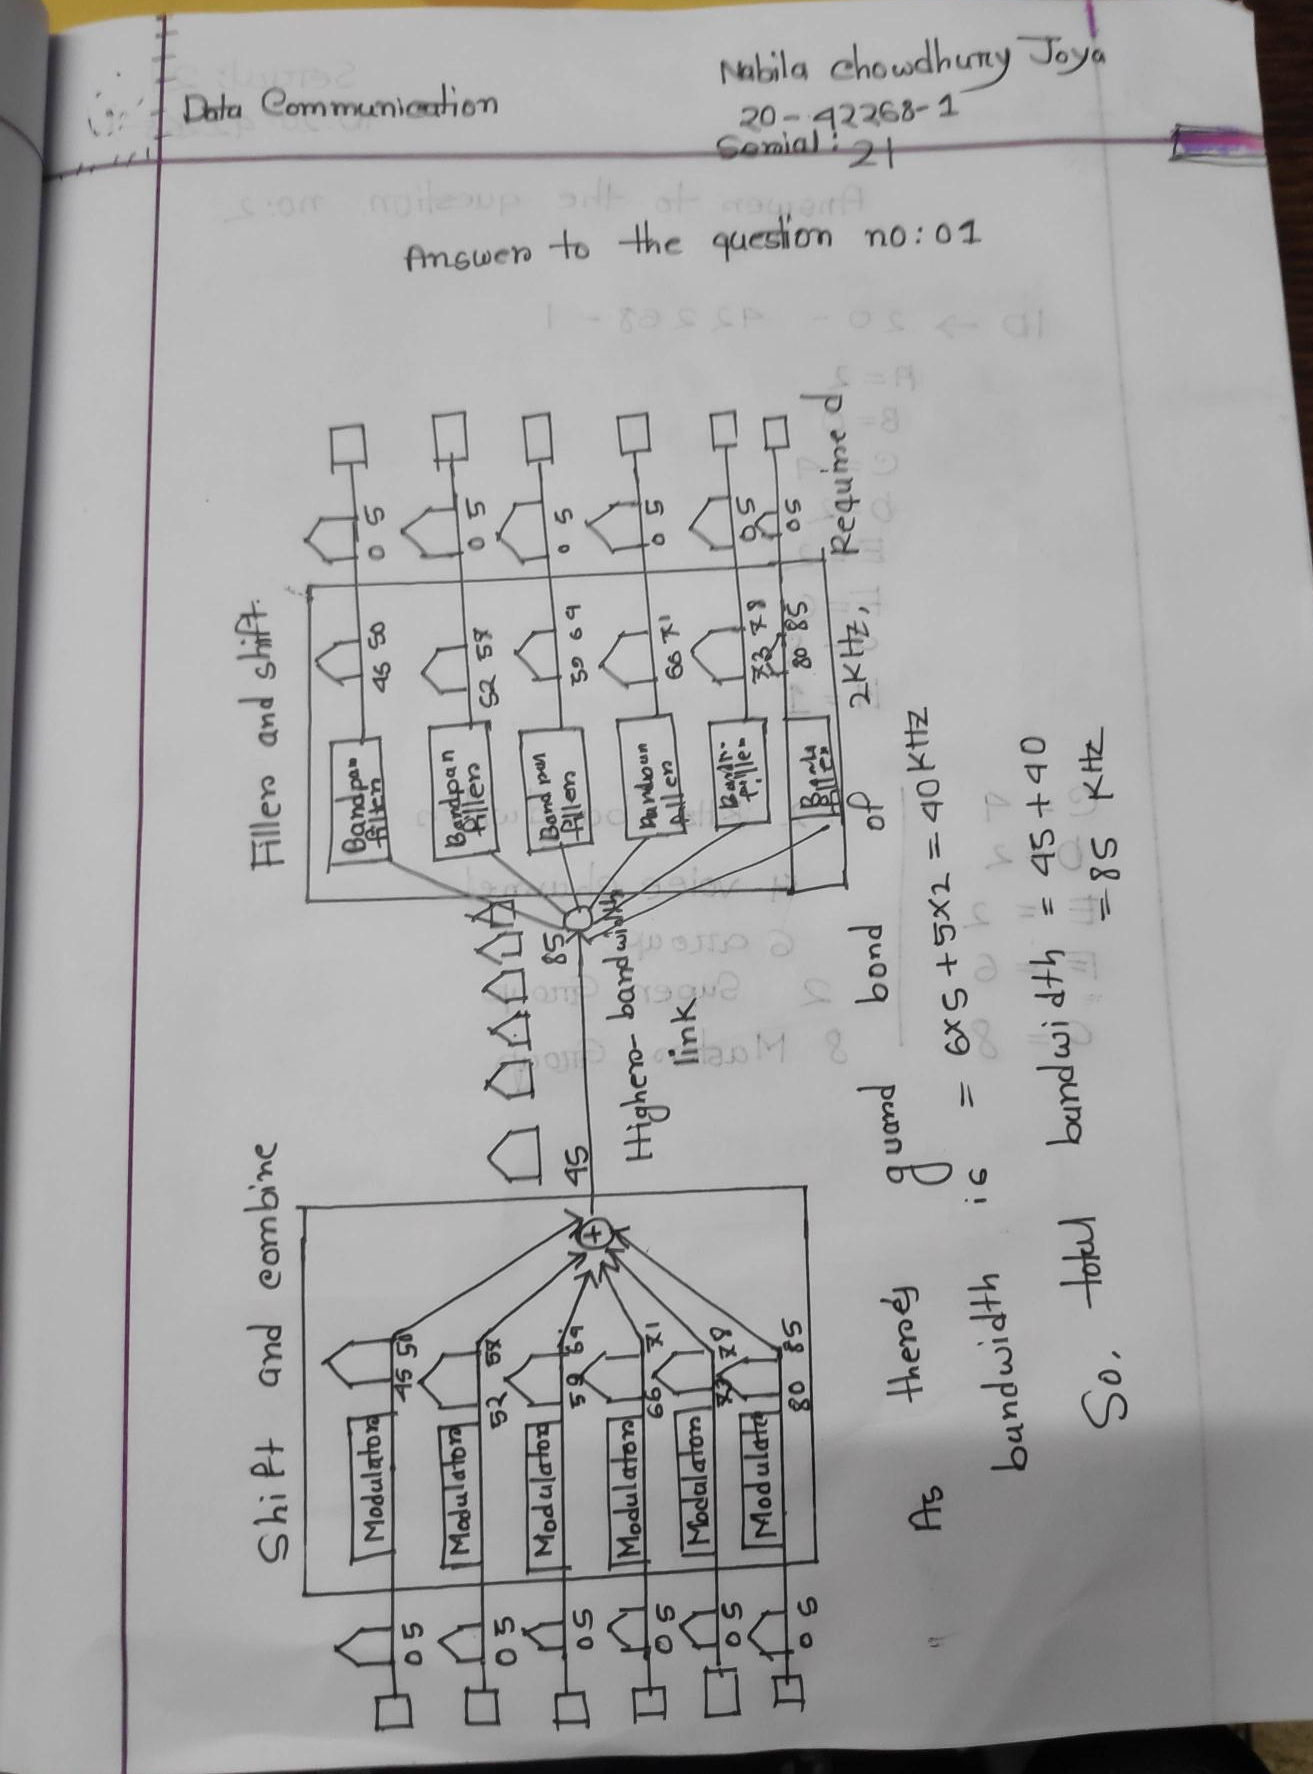 Data Communication
Nabila Chowdhury Joya
20-42268-1
Serial: 21
Answer to the question no: 01
Shift and combine
Filter and shift
0 5 Modulator 45 50
0 5 Modulator 52 57
0 5 Modulator 59 64
0 5 Modulator 66 71
0 5 Modulator 73 78
0 5 Modulator 80 85
45 85
Higher-bandwidth
link
Bandpass
filter 45 50 0 5
Bandpass
filter 52 57 0 5
Bandpass
filter 59 64 0 5
Bandpass
filter 66 71 0 5
filter 73 78 0 5
filter 80 85 0 5
As there's guard band of 2KHz, Required
bandwidth is = 6x5 + 5x2 = 40 KHz
So, total bandwidth = 45 + 40
= 85 KHz